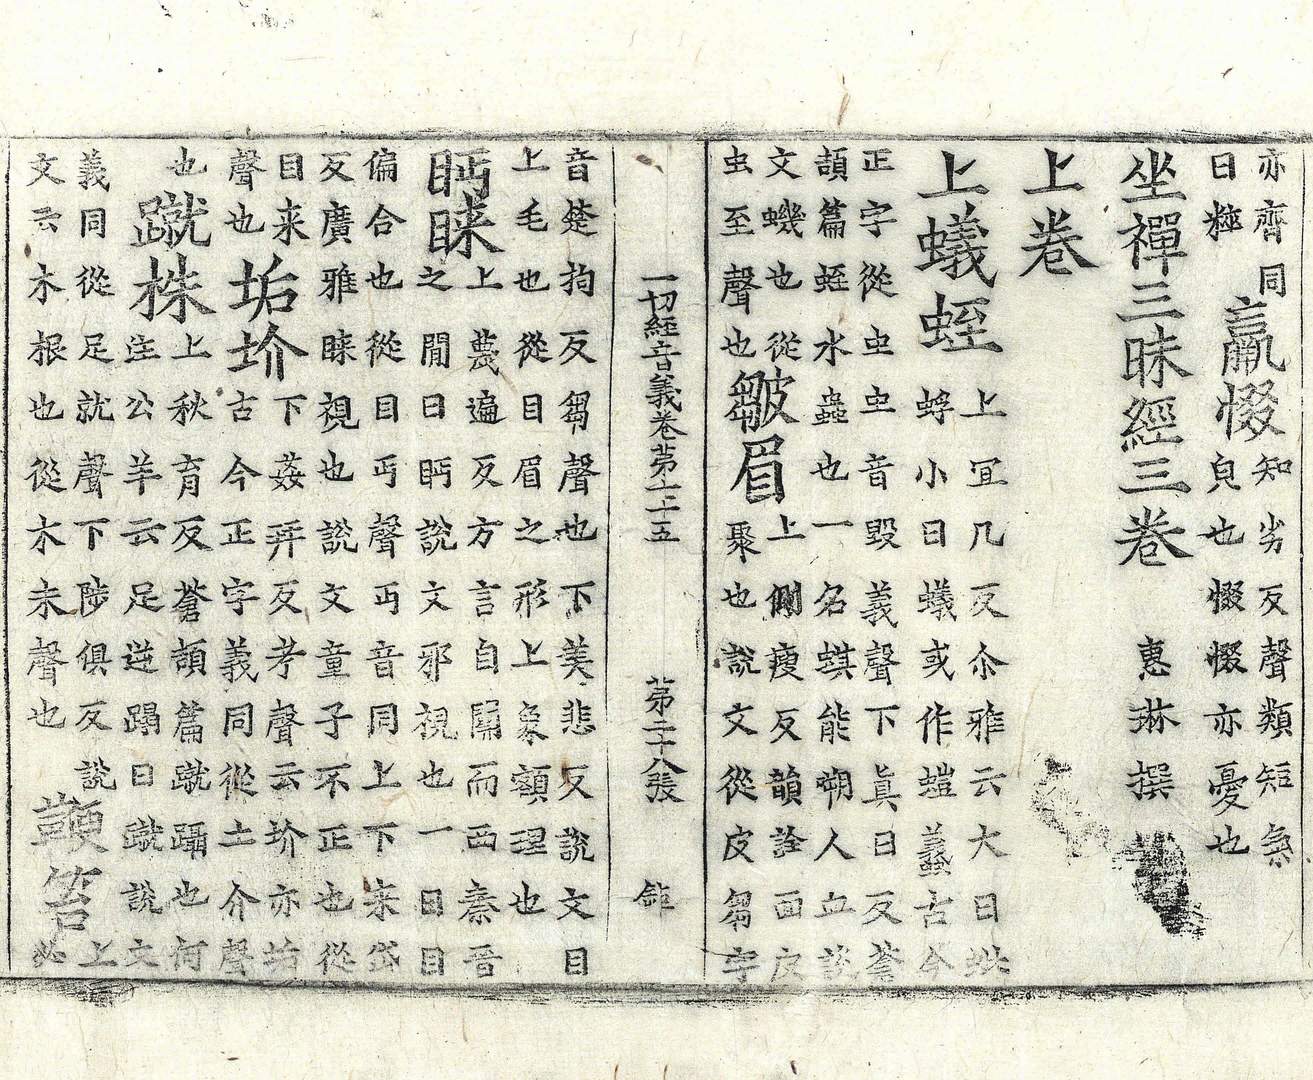 亦齊同
曰䊪
羸惙
知劣反聲類短氣
皃也惙惙亦憂也
坐禪三昧經三卷 惠琳撰
上卷
上蟻蛭
上冝几反尒雅云大曰蚍
蜉小曰蟻或作螘蟻古今
正字從虫虫音毀義聲下真日反蒼
頡篇蛭水蟲也一名蜞能嗍人血說
文蟣也從
虫至聲也
皺眉
上側瘦反韻詮面皮
聚也說文從皮芻字
一切經音義卷苐七十五 苐二十八張 鉅
音楚拘反芻聲也下美悲反說文目
上毛也從目眉之形上象額理也
眄睞
上蔑遍反方言自關而西秦晉
之間曰眄說文邪視也一曰目
偏合也從目丏聲丏音同上下來岱
反廣雅睞視也說文童子不正也從
目来聲也
垢圿
下姦拜反考聲云圿亦垢
古今正字義同從土介聲
也
蹴株
上秋育反蒼頡篇蹴躡也何
注公羊云足逆蹋曰蹴說文
義同從足就聲下陟俱反說
文云木根也從木朱聲也
鞭笞
上
必